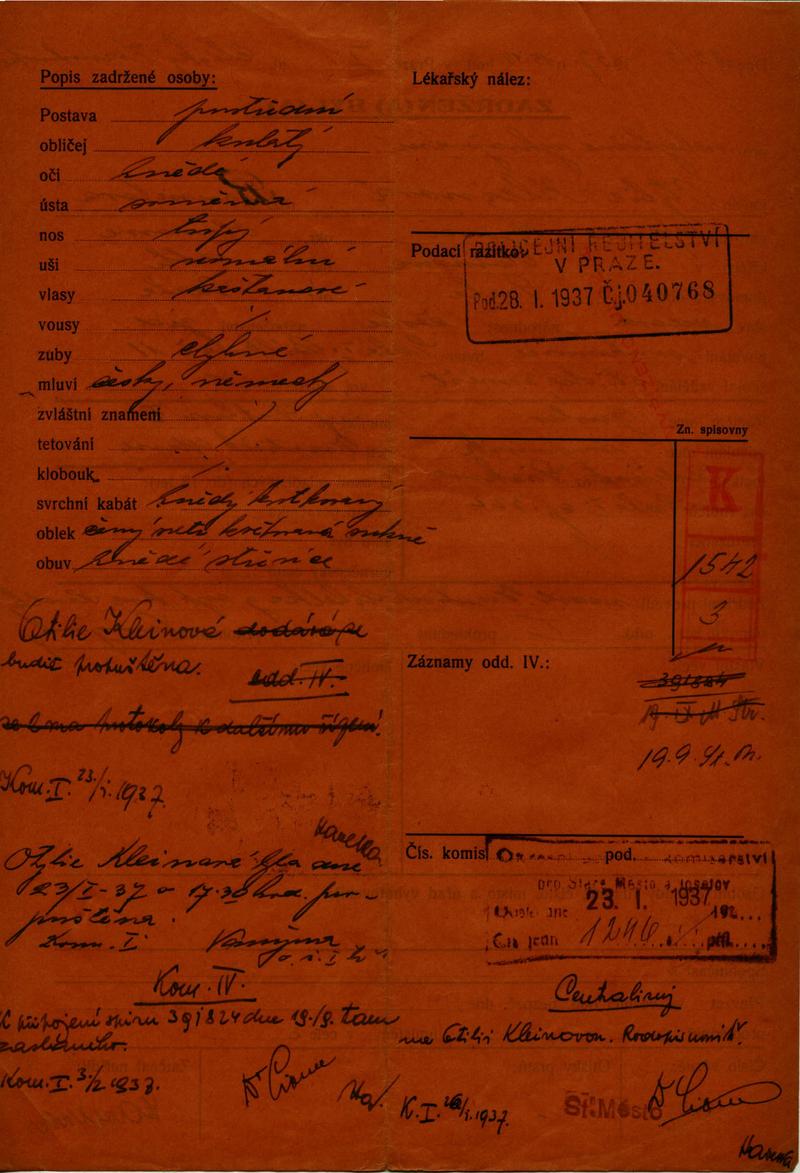 Popis zadržené osoby:
Postava prostřední
obličej kulatý
oči hnědé
ústa normální
nos tupý
uši normální
vlasy kaštanové
vousy /.
zuby chybné
mluví česky, německy
zvláštní znamení /
tetování
klobouk /.
svrchní kabát hnědý kostkovaný
oblek černý květovaná sukně
obuv hnědé střevíce
Otilie Kleinová dodává se
budiž propuštěna.
odd. IV.
protokoly k dalšímu řízení.
Kom. I. 23/I. 1937.
Havelka
Otylie Kleinová byla dne
23/I-37 o 17.30 hod. pro-
puštěna.
Kom. I.
Kom. IV.
K připojení spisu 391824 dne 19./9. tam
zaslaného.
Kom. I. 3/2 1937.
Lékařský nález:
Podací razítko:
POLICEJNÍ ŘEDITELSTVÍ
V PRAZE.
Pod. 28. I. 1937 Čj. 040768
Zn. spisovny
K
1542
3
Záznamy odd. IV.:
391824
19. IX
19.9.
Čís. komis. pod.
komisařství
pro Staré Město a Josefov
23. I. 1937
Čís. jedn. 1246
příl.
Centrální
na Otilii Kleinovou.
K. I. 26/I. 1937.
St. Město